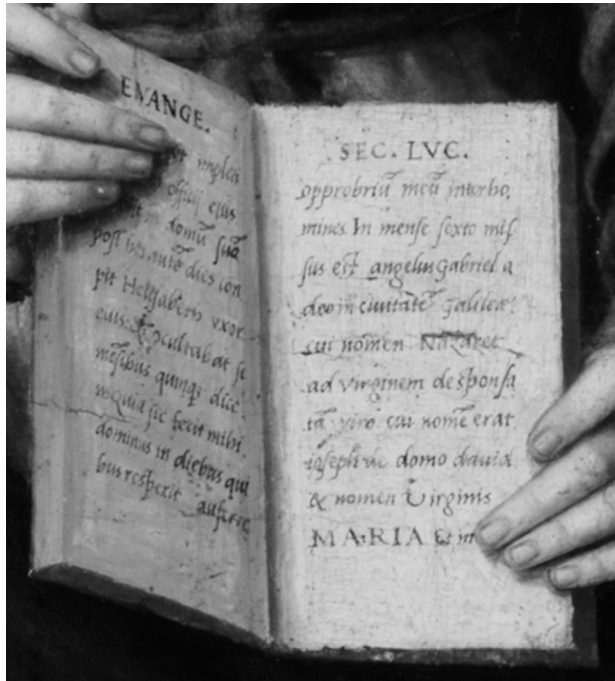 EVANGE.
impleti
officij eius
in domũ suã
post hos autẽ dies con
pit Helisabeth vxor
eius & ocultabat se
mẽsibus quinq; dicẽ.
quia sic fecit mihi
dominus in diebus qui
bus respexit auferre
SEC. LVC.
opprobriũ meũ interho,
mines In mense sexto mis
sus est angelus Gabriel a
deo in ciuitatẽ Galileæ.
cui nomen Nazaret
ad virginem desponsa
tã viro cui nomẽ erat
ioseph de domo dauid
& nomen Virginis
MARIA Et